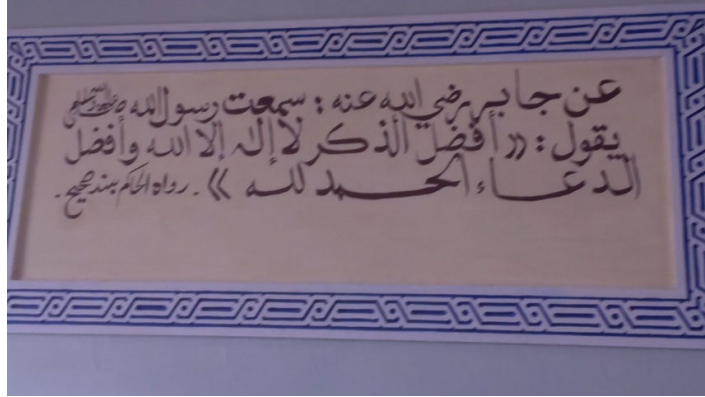 عن جابر رضي الله عنه : سمعت رسول الله ﷺ
يقول : « أفضل الذكر لا إله إلا الله وأفضل
الدعاء الحمد لله » . رواه الحاكم بسند صحيح .